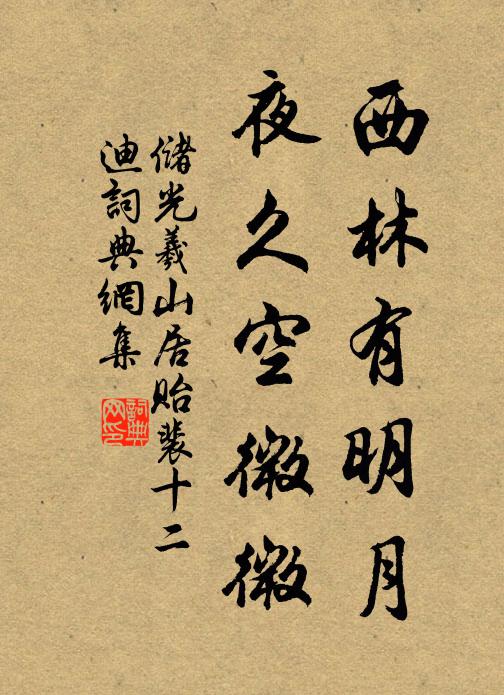 西林有明月
夜久空微微
儲光羲山居貽裴十二
迪詞典網集
詞典
网印